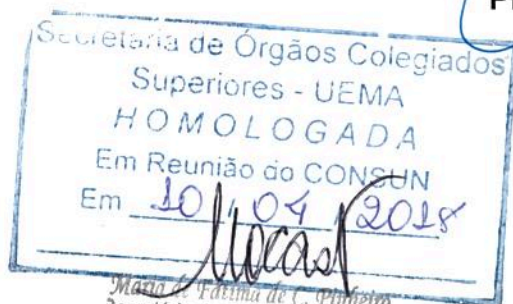 Secretaria de Órgãos Colegiados
Superiores - UEMA
HOMOLOGADA
Em Reunião do CONSUN
Em 10 / 04 / 2018
Maria de Fátima de C. Pinheiro